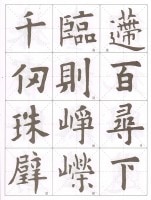 遰百尋下
臨則崢嶸
千仞珠璧